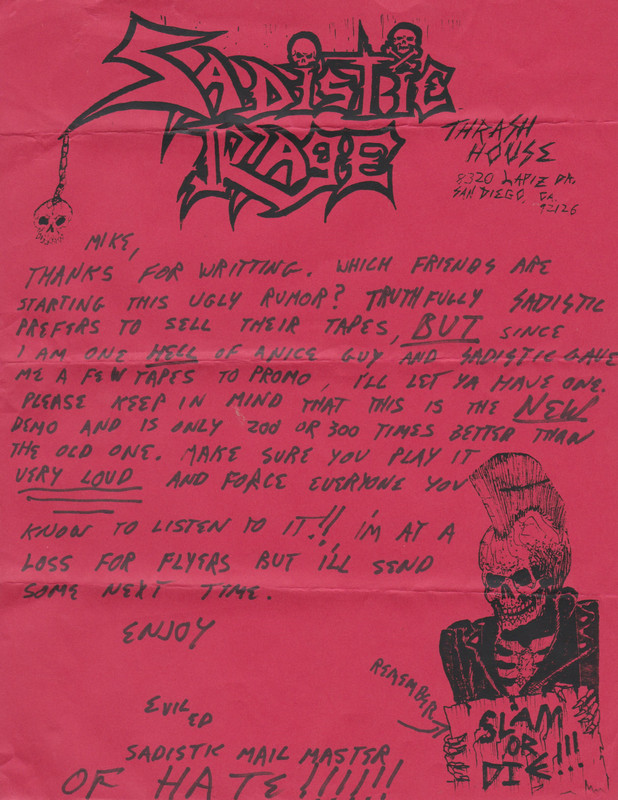 SADISTIC
RAGE
THRASH
HOUSE
8320 LAPIZ DR.
SAN DIEGO, CA.
92126
MIKE,
THANKS FOR WRITTING. WHICH FRIENDS ARE
STARTING THIS UGLY RUMOR? TRUTHFULLY SADISTIC
PREFERS TO SELL THEIR TAPES, BUT SINCE
I AM ONE HELL OF A NICE GUY AND SADISTIC GAVE
ME A FEW TAPES TO PROMO, I'LL LET YA HAVE ONE.
PLEASE KEEP IN MIND THAT THIS IS THE NEW
DEMO AND IS ONLY 200 OR 300 TIMES BETTER THAN
THE OLD ONE. MAKE SURE YOU PLAY IT
VERY LOUD AND FORCE EVERYONE YOU
KNOW TO LISTEN TO IT!! I'M AT A
LOSS FOR FLYERS BUT I'LL SEND
SOME NEXT TIME.
ENJOY
EVIL
ED
SADISTIC MAIL MASTER
OF HATE!!!!!!
REMEMBER
SLAM
OR
DIE!!!